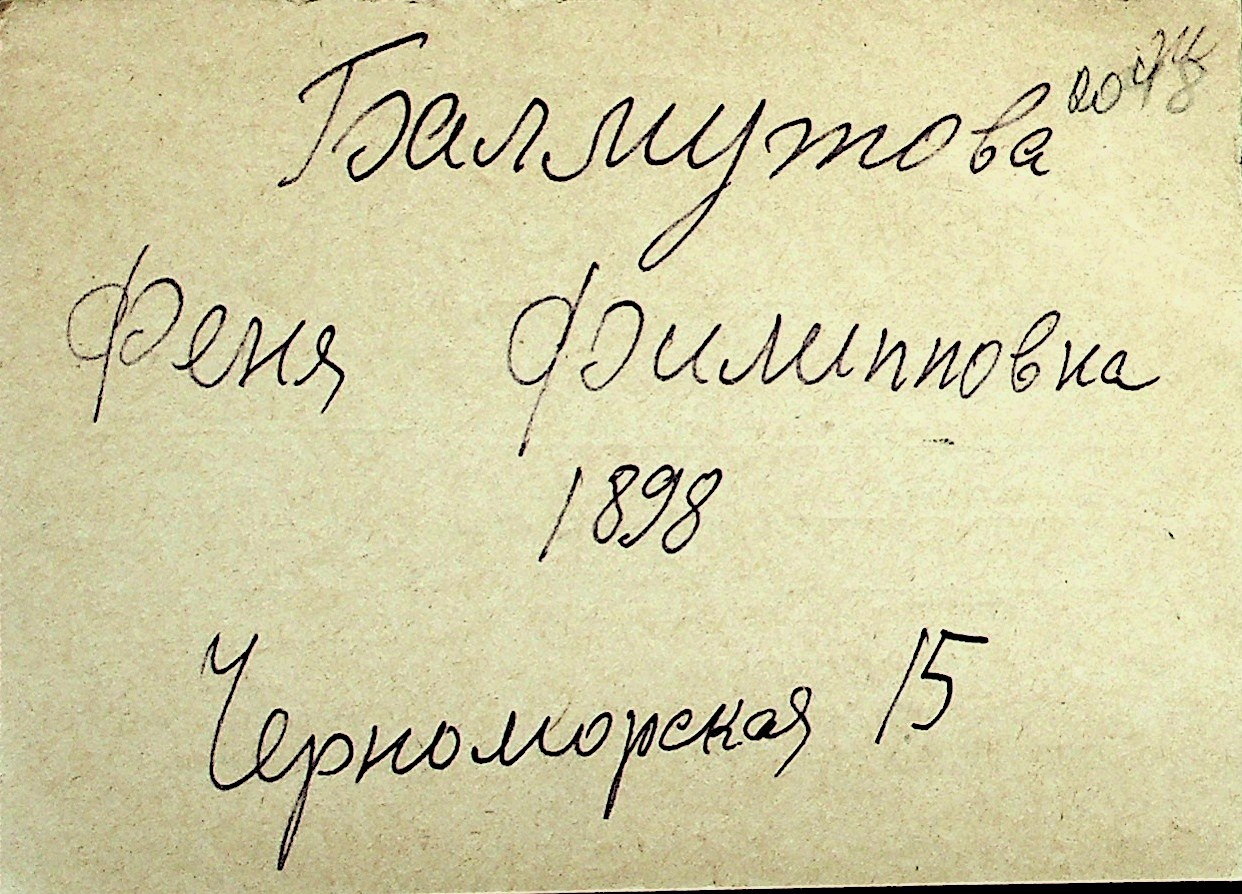 Балмутова
Феня Филипповна
1898
Черноморская 15